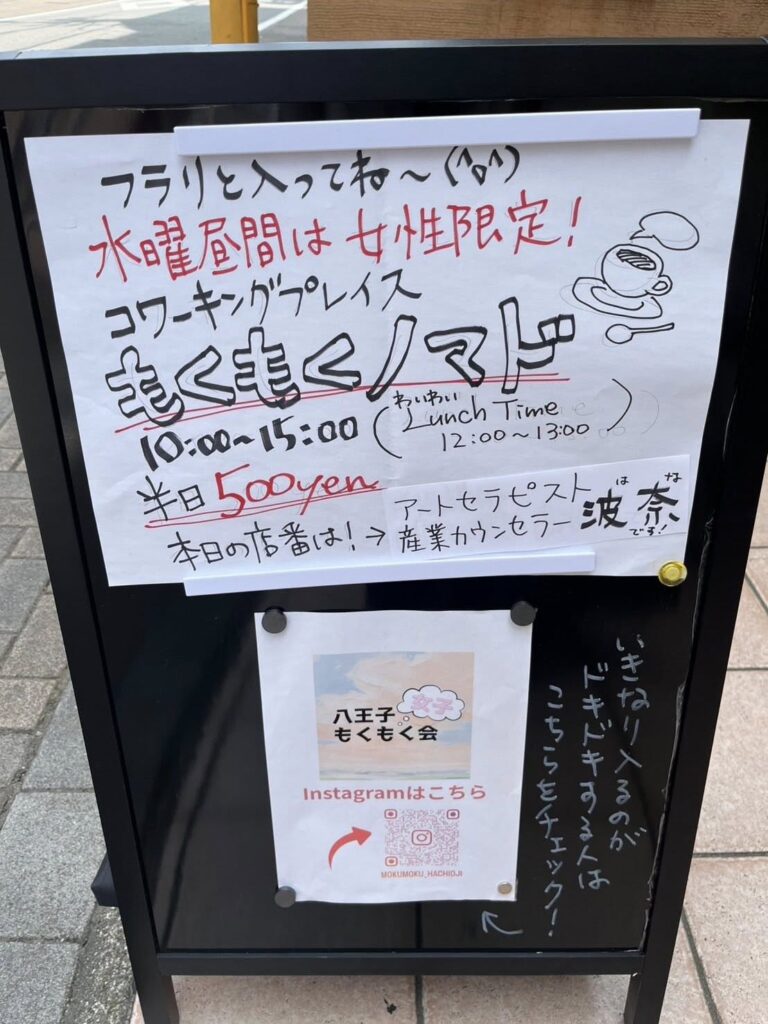 フラリと入ってね〜(^o^)
水曜昼間は女性限定!
コワーキングプレイス
もくもくノマド
10:00〜15:00
わいわい
Lunch Time
12:00〜13:00
半日500yen
本日の店番は!→
アートセラピスト
産業カウンセラー
波奈
は な
です!
八王子
女子
もくもく会
Instagramはこちら
MOKUMOKU_HACHIOJI
いきなり入るのが
ドキドキする人は
こちらをチェック!